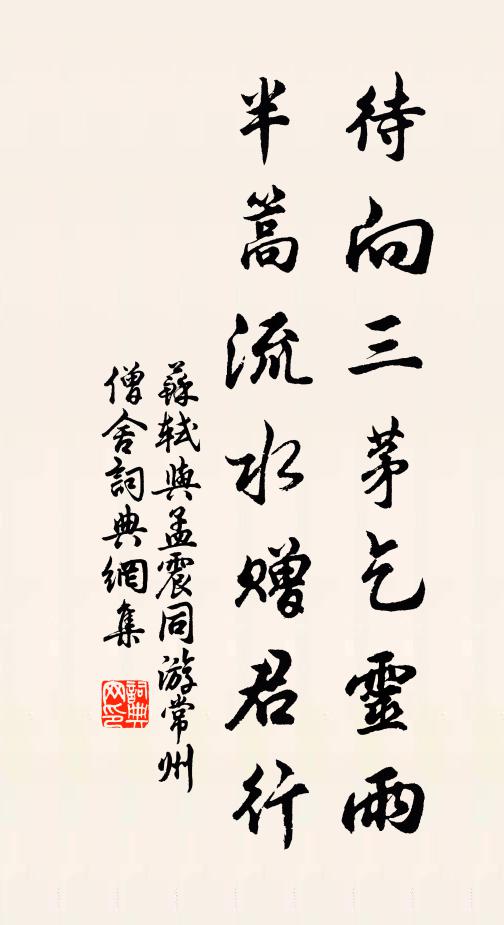 待向三茅乞靈雨
半篙流水贈君行
蘇軾與孟震同游常州
僧舍詞典網集
詞典
网印